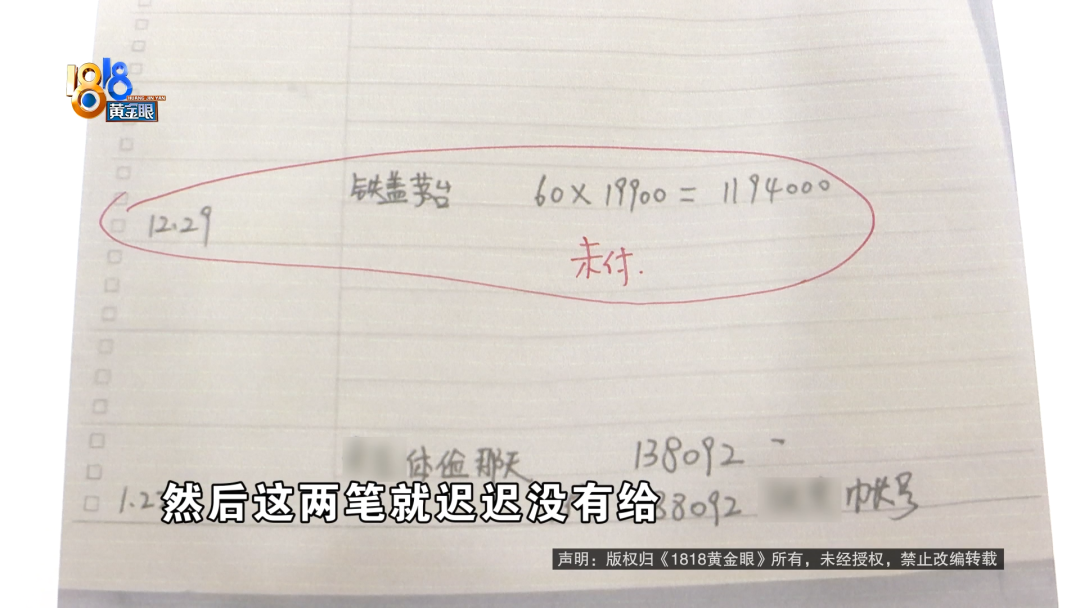 1818
HUANG JIN YAN
黄金眼
铁盖茅台 60×19900=1194000
12.29
未付.
体检那天 138092
1.2 38092 帐号
然后这两笔就迟迟没有给
声明：版权归《1818黄金眼》所有，未经授权，禁止改编转载